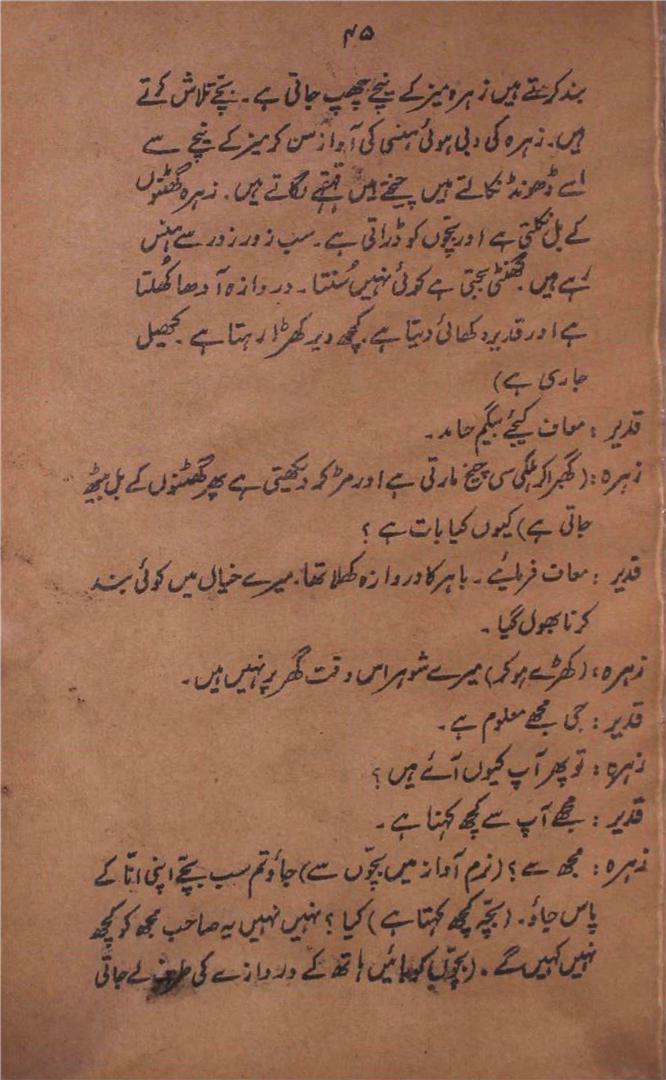 ۴۵
بند کرتے ہیں زہرہ میز کے نیچے چھپ جاتی ہے۔ بچّے تلاش کرتے
ہیں۔ زہرہ کی دبی ہوئی ہنسی کی آواز سن کر میز کے نیچے سے
اسے ڈھونڈ نکالتے ہیں چیختے ہیں قہقہے لگاتے ہیں۔ زہرہ گھٹنوں
کے بل نکلتی ہے اور بچّوں کو ڈراتی ہے۔ سب زور زور سے ہنس
رہے ہیں۔ گھنٹی بجتی ہے کوئی نہیں سُنتا۔ دروازہ آدھا کُھلتا
ہے اور قدیر دکھائی دیتا ہے۔ کچھ دیر کھڑا رہتا ہے۔ کھیل
جاری ہے)
قدیر : معاف کیجئے بیگم حامد۔
زہرہ : (گھبرا کر ہلکی سی چیخ مارتی ہے اور مڑ کر دیکھتی ہے پھر گھٹنوں کے بل بیٹھ
جاتی ہے) کیوں کیا بات ہے ؟
قدیر : معاف فرمائیے۔ باہر کا دروازہ کھلا تھا۔ میرے خیال میں کوئی بند
کرنا بھول گیا۔
زہرہ : (کھڑے ہو کر) میرے شوہر اس وقت گھر پر نہیں ہیں۔
قدیر : جی مجھے معلوم ہے۔
زہرہ : تو پھر آپ کیوں آئے ہیں ؟
قدیر : مجھے آپ سے کچھ کہنا ہے۔
زہرہ : مجھ سے ؟ (نرم آواز میں بچّوں سے) جاؤ تم سب بچّے اپنی انّا کے
پاس جاؤ۔ (بچّہ کچھ کہتا ہے) کیا ؟ نہیں نہیں یہ صاحب مجھ کو کچھ
نہیں کہیں گے۔ (بچّوں کو بائیں ہاتھ کے دروازے کی طرف لے جاتی